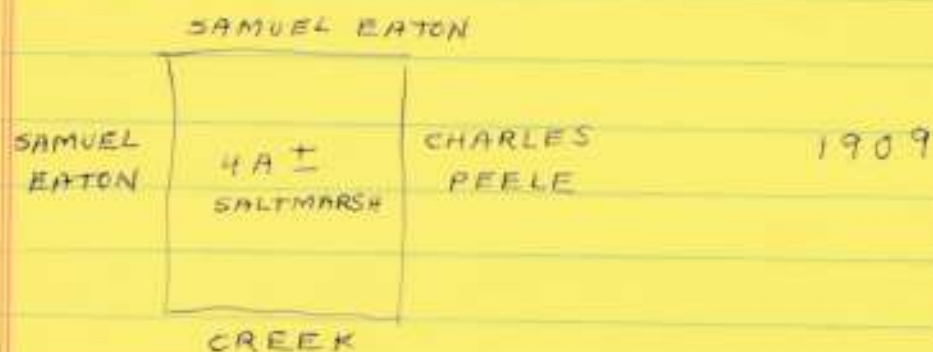 SAMUEL EATON
SAMUEL
EATON
4A ±
SALTMARSH
CHARLES
PEELE
1909
CREEK